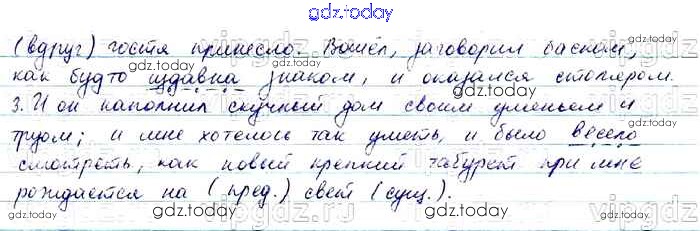 gdz.today
(вдруг) гостя принесло. Вошёл, заговорил баском,
gdz.today
как будто издавна знаком, и оказался столяром.
3. И он наполнил скучный дом своим уменьем и
трудом; и мне хотелось так уметь, и было весело
смотреть, как новый крепкий табурет при мне
gdz.today gdz.today
рождается на (пред.) свет (сущ.).
gdz.today